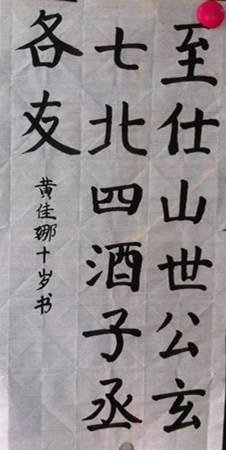 至仕山世公玄
七北四酒子丞
各友
黄佳娜十岁书